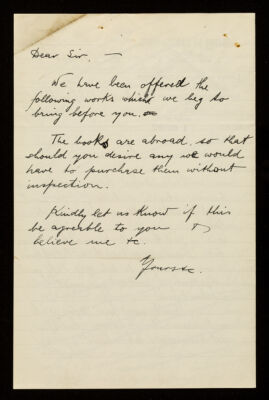 Dear Sir, —
We have been offered the
following works which we beg to
bring before you.
The books are abroad, so that
should you desire any we would
have to purchase them without
inspection.
Kindly let us know if this
be agreeable to you &
believe me &c.
Yours &c.